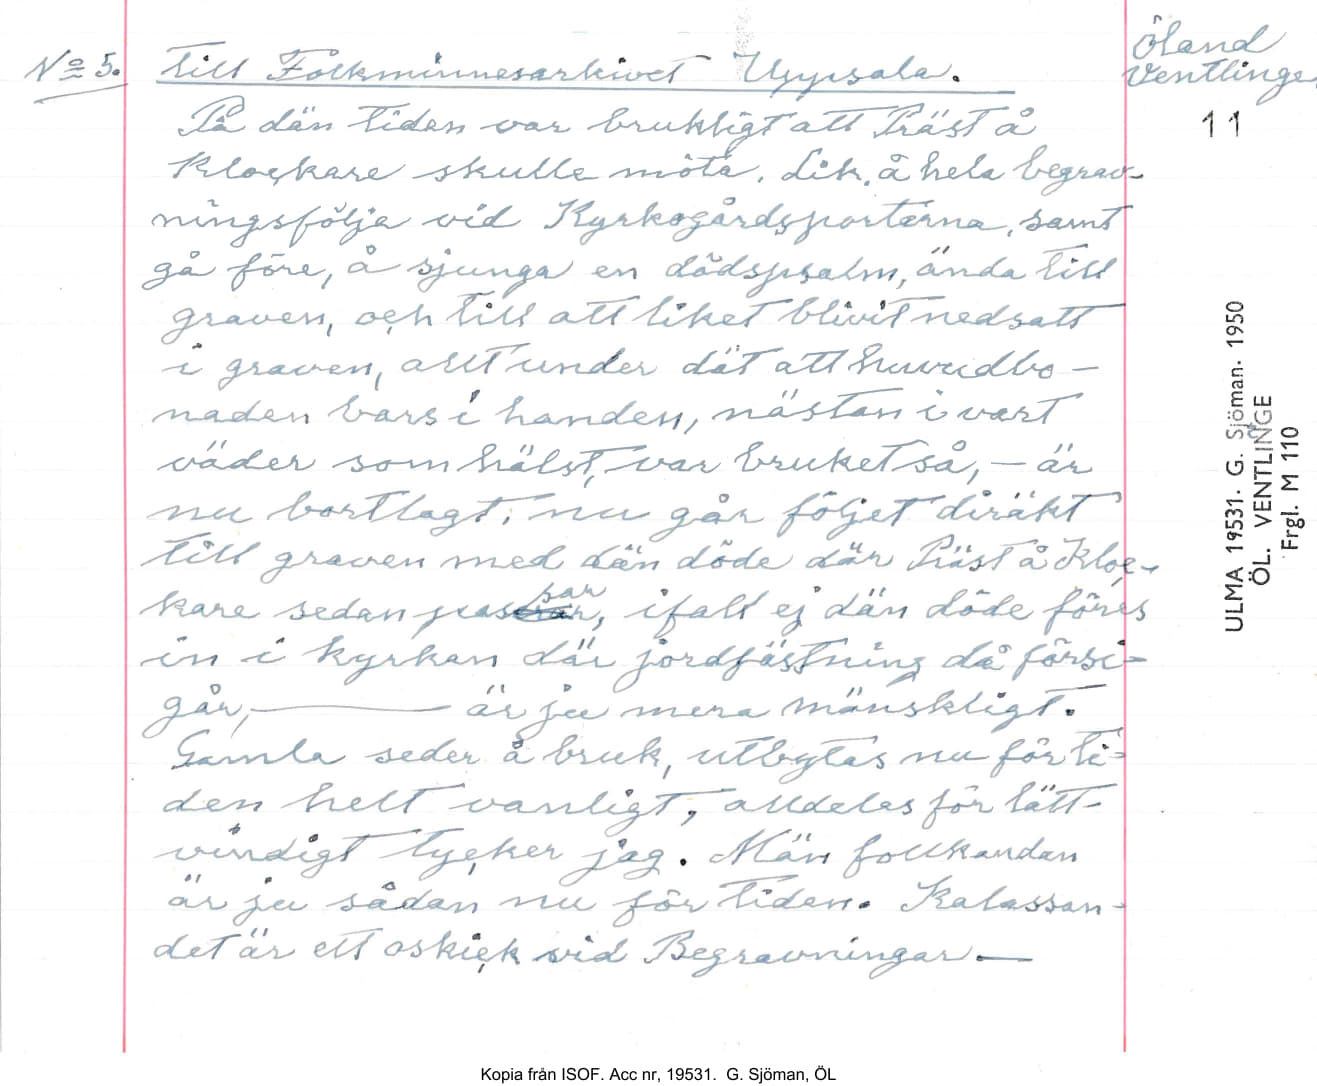 No 5.
Till Folkminnesarkivet Uppsala.
Öland
Ventlinge.
11
På dän tiden var brukligt att Präst å
Klockare skulle möta. Lik. å hela begrav-
ningsfölja vid Kyrkogårdsportarna, samt
gå före, å sjunga en dödspsalm, ända till
graven, och till att liket blivit nedsatt
i graven, allt under dät att huvudbo-
naden bars i handen, nästan i vart
väder som hälst, var bruket så, – är
nu bortlagt. nu går följet diräkt
till graven med dän döde där Präst å Kloc-
kare sedan passar, ifall ej dän döde föres
in i kyrkan där jordfästning då försi-
går, — är ju mera mänskligt.
Gamla seder å bruk, utbytas nu för ti-
den helt vanligt, alldeles för lätt-
vindigt tycker jag. Män folkandan
är ju sådan nu för tiden. Kalassan-
det är ett oskick vid Begravningar. —
ULMA 19531. G. Sjöman. 1950
ÖL. VENTLINGE
Frgl. M 110
Kopia från ISOF. Acc nr, 19531. G. Sjöman, ÖL